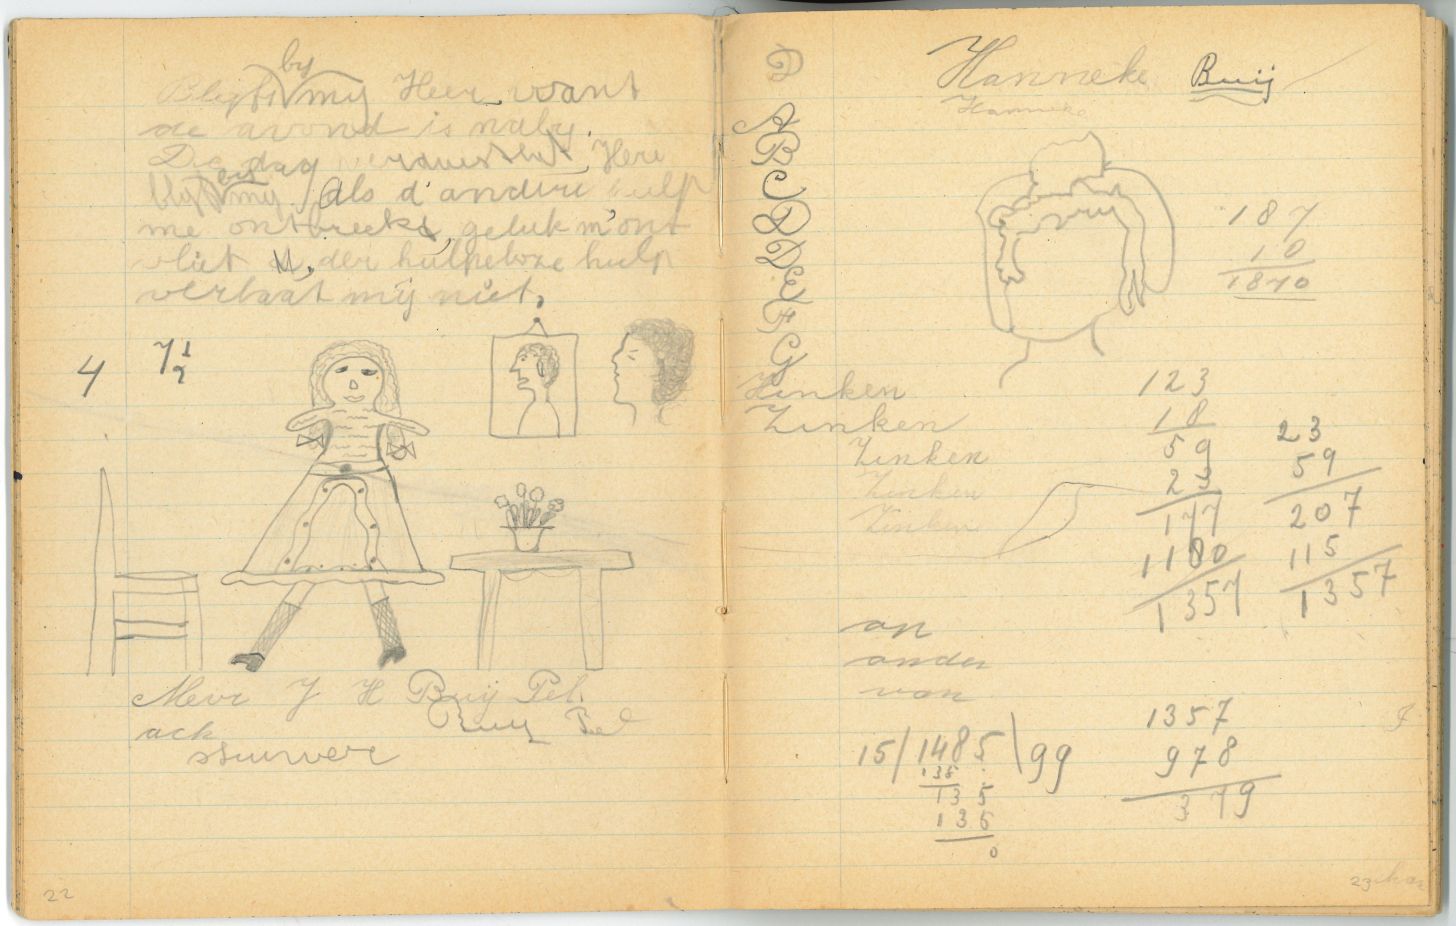 by
Blyf my Heer want
de avond is naby.
Die dag verduistert, Here
by
blyf my als d'andere hulp
me ontbreekt, geluk m'ont
vliet der hulpeloze hulp
verlaat mij niet.
4 7 1/2
Mevr J H Buij Pel.
Buij Pel
ack
22
D
A
B
C
D
D
E
F
G
Hanneke Buij
Hanneke
187
10
1870
Zinken
Zinken
Zinken
Zinken
Zinken
123
18
59
23
177
1180
1357
23
59
207
115
1357
an
ander
van
15/1485\99
135
135
135
0
1357
978
379
23